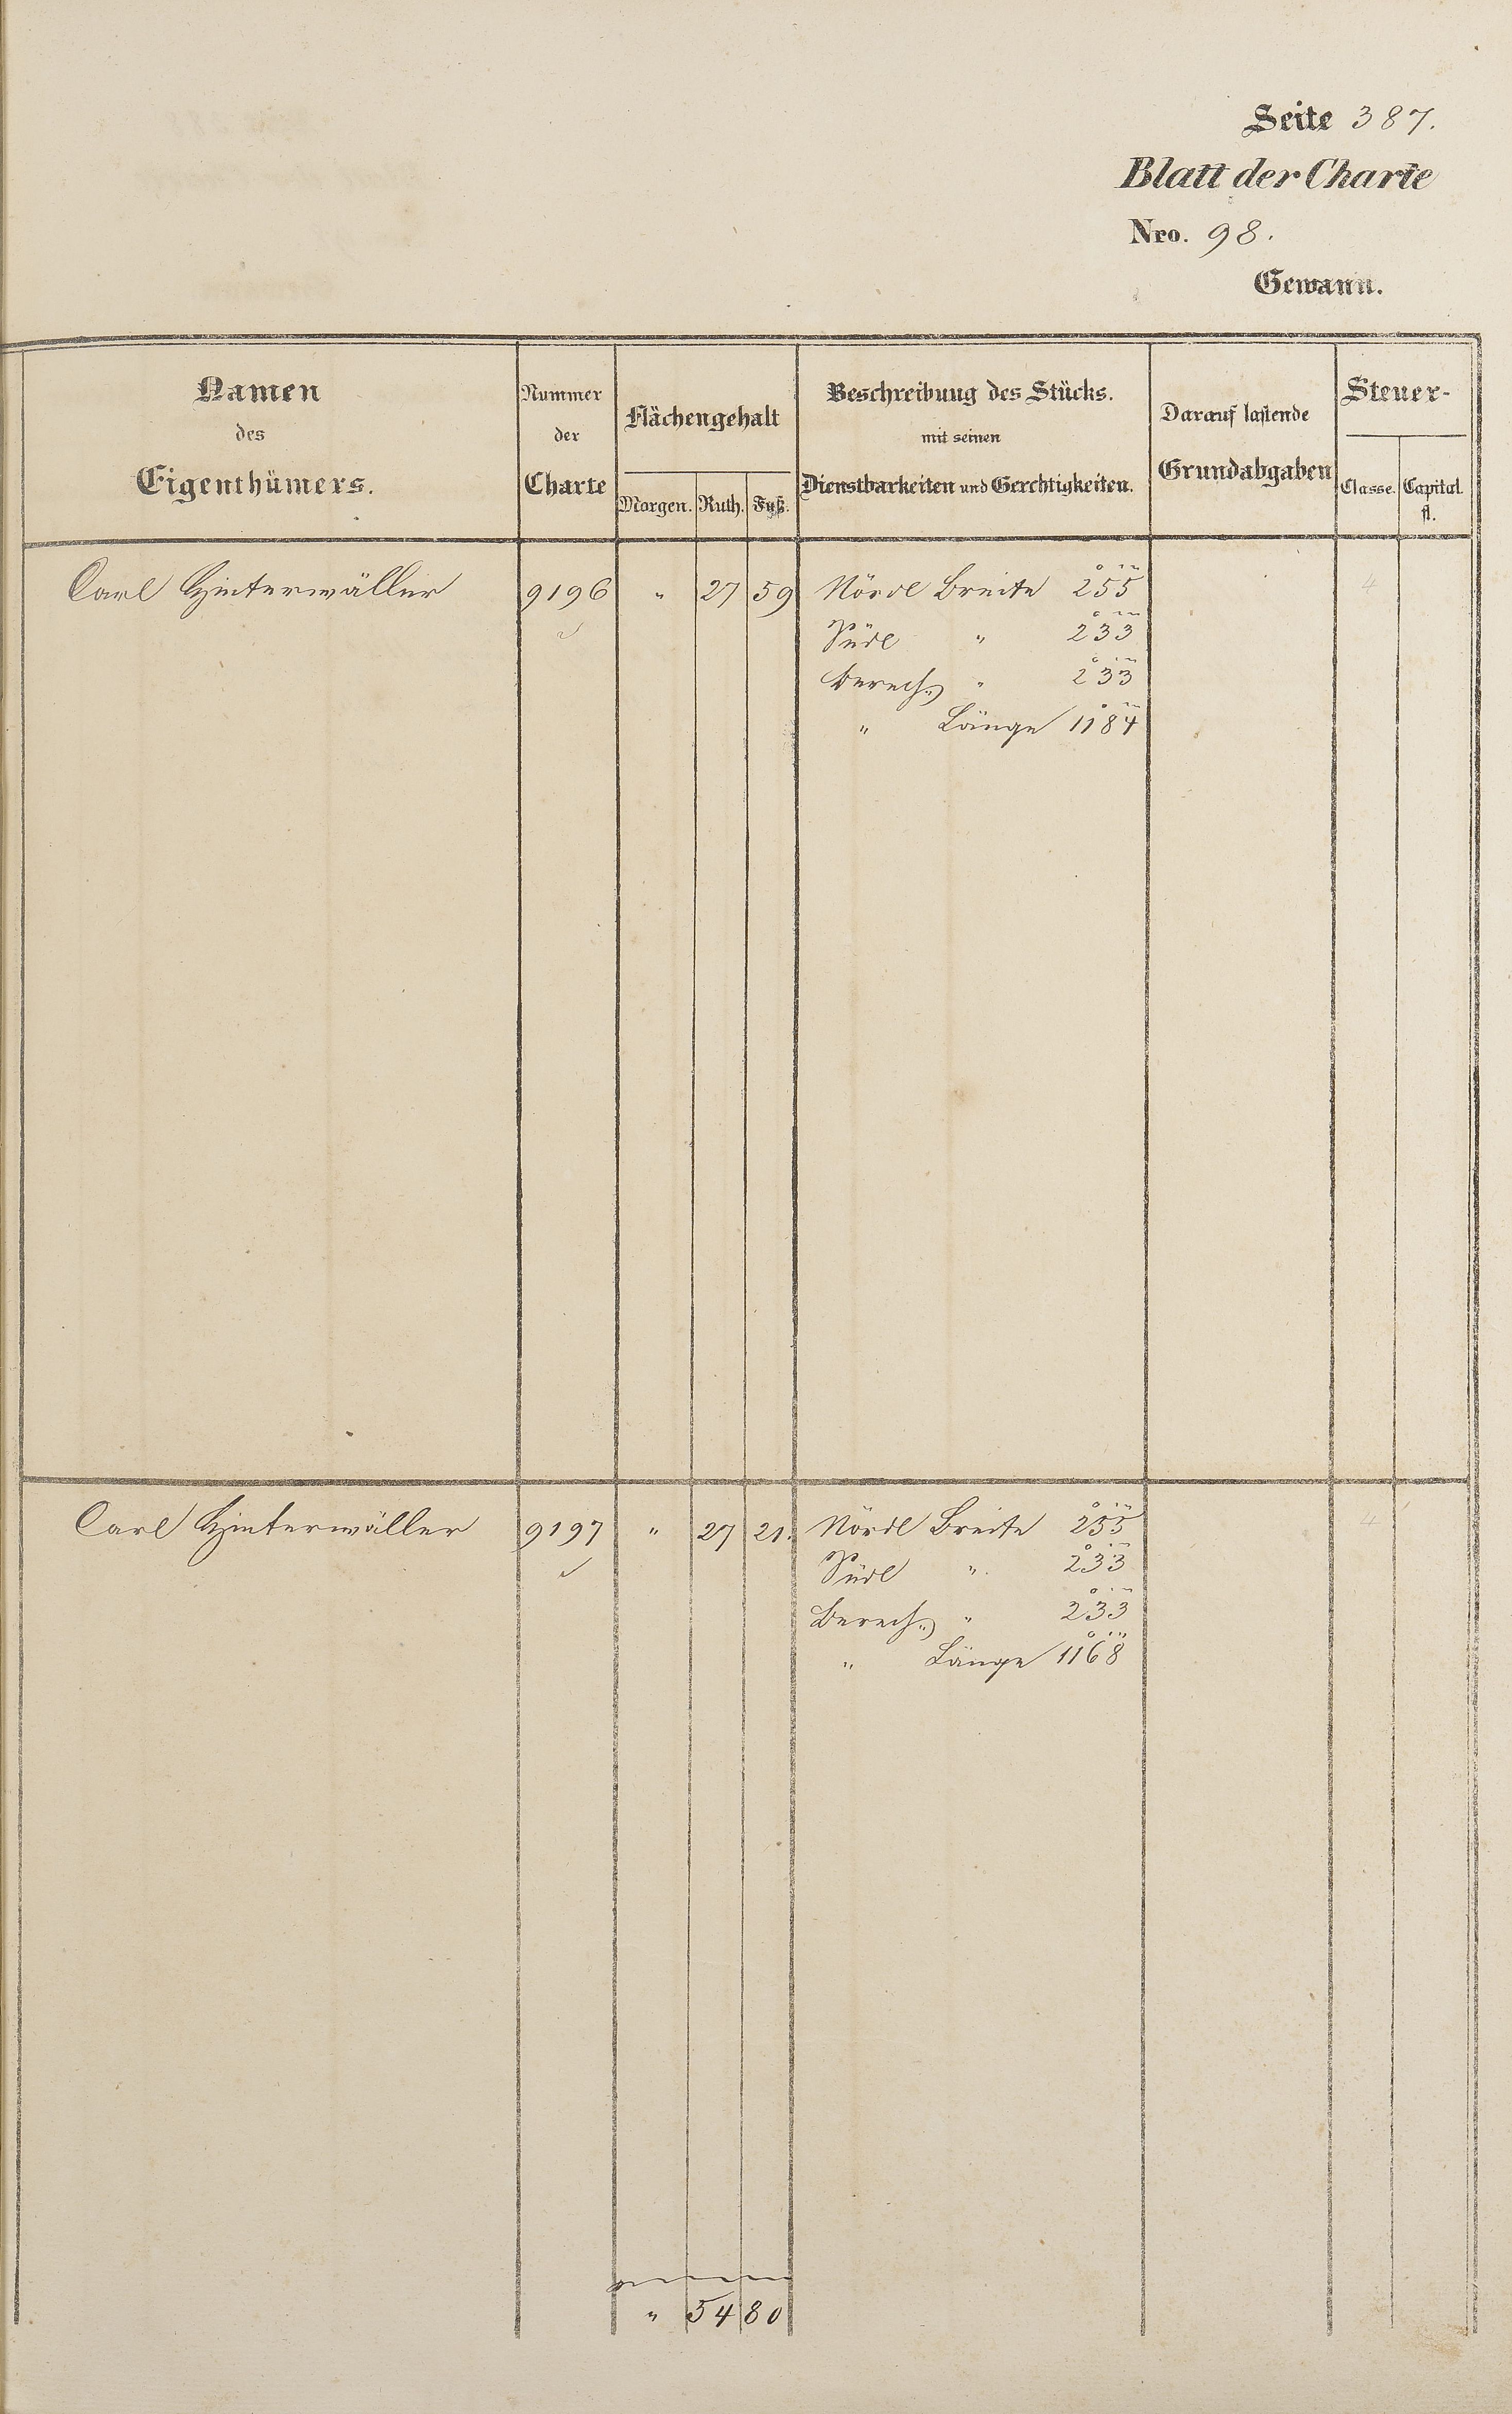 Seite 387.
Blatt der Charte
Nro. 98.
Gewann.
Namen
des
Eigenthümers.
Nummer
der
Charte
Flächengehalt
Morgen. Ruth. Fuß.
Beschreibung des Stücks.
mit seinen
Dienstbarkeiten und Gerechtigkeiten.
Darauf lastende
Grundabgaben
Steuer-
Classe. Capital
fl.
Carl Hinterwäller 9196 " 27 59 Nördl Breite 255 4
Südl " 233
berech. " 233
" Länge 1184
Carl Hinterwäller 9197 " 27 21. Nördl Breite 255 4
Südl " 233
berech. " 233
" Länge 1168
" 54 80